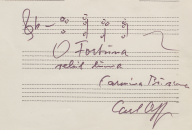 O Fortuna
velut luna
Carmina Burana
Carl Orff